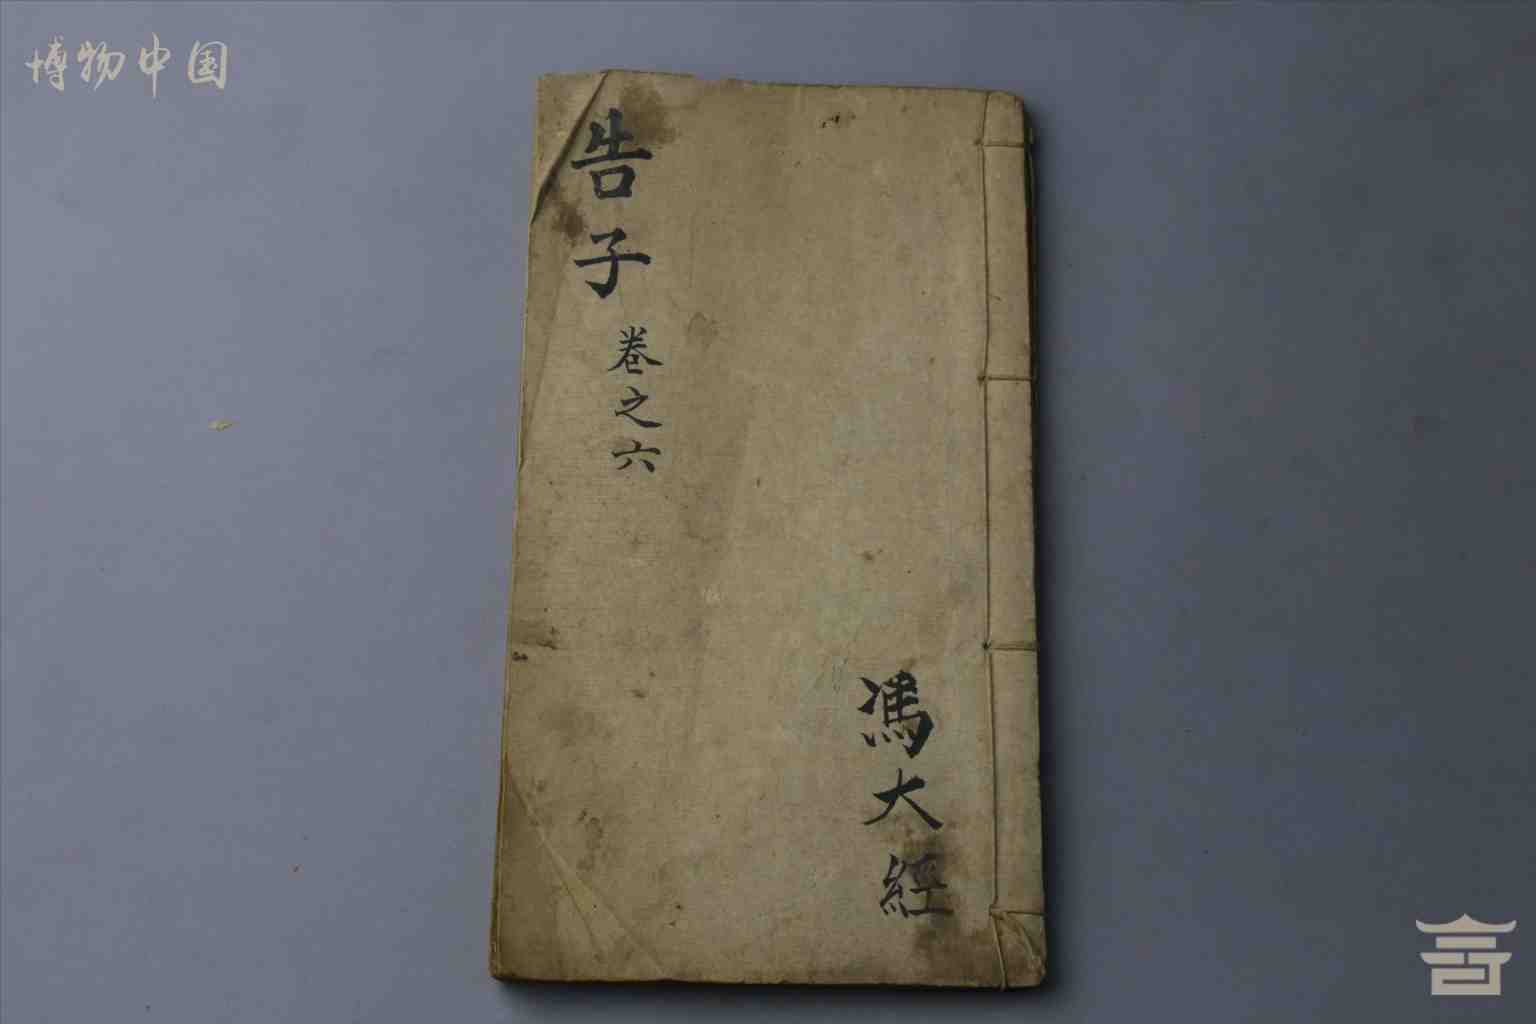 博物中国
告子
卷之六
馮大經